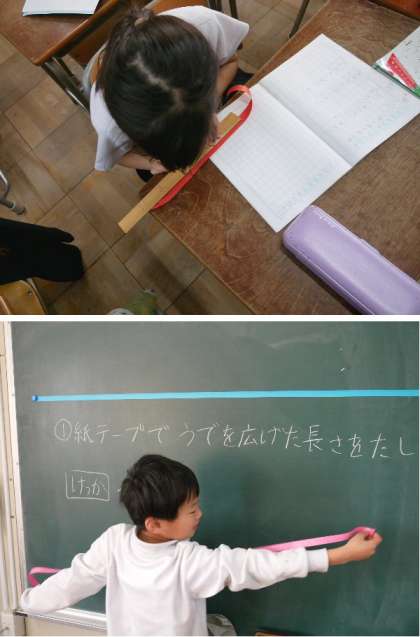 ①紙テープで うでを広げた長さをたし
けっか